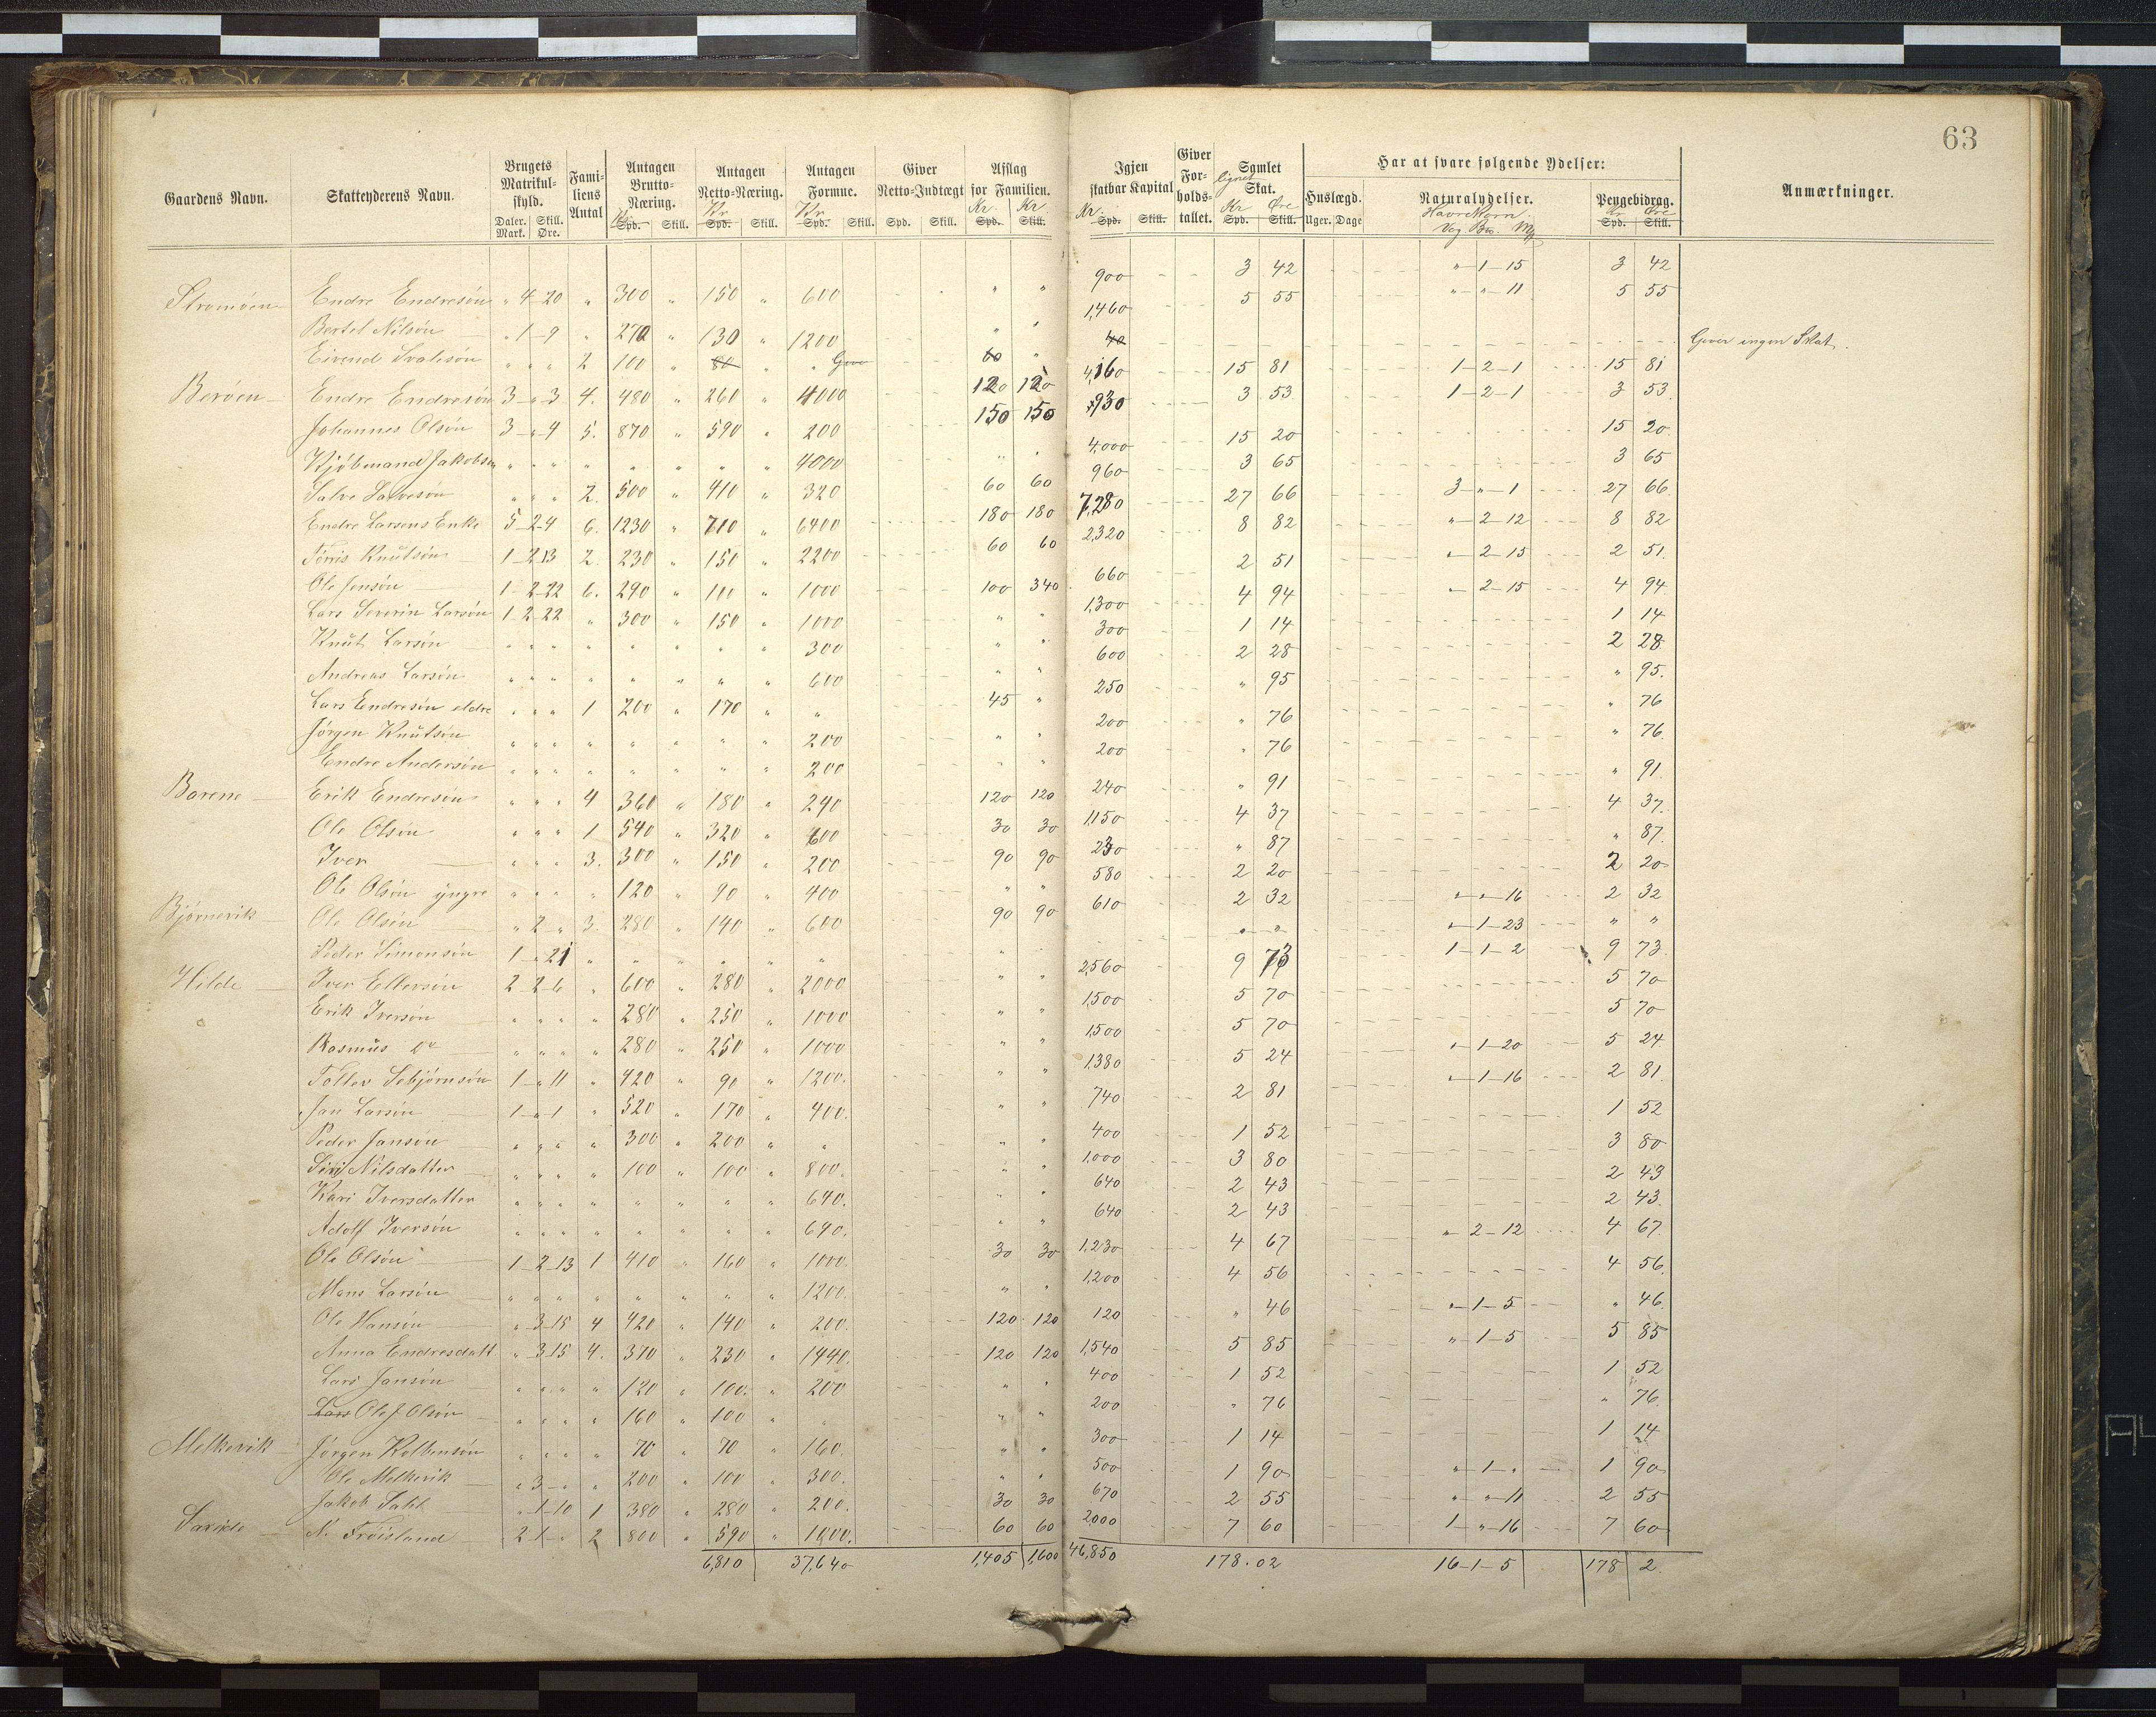 63
Gaardens Navn. Skatteyderens Navn. Brugets Matrikul-skyld. Fami-liens Antal Antagen Brutto-Næring. Antagen Netto-Næring. Antagen Formue. Giver Netto-Indtægt Afslag for Familien. Igjen skatbar Kapital Giver For-holds-tallet. Samlet lignet Skat. Har at svare følgende Ydelser: Anmærkninger.
Huslægd. Naturalydelser. Pengebidrag.
Daler. Mark. Skill. Øre. Kr. Spd. Skill. Kr Spd. Skill. Kr Spd. Skill. Spd. Skill. Kr Spd. Kr Skill. Kr. Spd. Skill. Kr Spd. Øre Skill. Uger. Dage Havre Korn Vog Bu. Mk Kr Spd. Øre Skill.
Strømøen Endre Endresön " 4-20 " 300 " 150 " 600 " " 900 3 42 "-1-15 3 42
Bertel Nilsön " 1-9 " 270 " 130 " 1200 " " 1,460 5 55 "-"-11 5 55
Eivend Svalesön " " " 2 100 " 80 " " Giver 60 " 40 Giver ingen Skat.
Berøen Endre Endresön 3-"-3 4. 480 " 260 " 4000 120 120 4,160 15 81 1-2-1 15 81
Johannes Olsön 3-"-4 5. 870 " 590 " 200 150 150 930 3 53 1-2-1 3 53
Kjöbmand Jakobsen " " " " " " " " 4000 " " 4,000 15 20 15 20
Salve Salvesön " " " 2. 500 " 410 " 320 60 60 960 3 65 3 65
Endre Larsens Enke 5-2-4 6. 1230 " 710 " 6400 180 180 7,280 27 66 3-"-1 27 66
Törris Knutsön 1-2-13 2. 230 " 150 " 2200 60 60 2,320 8 82 "-2-12 8 82
Ole Jensön 1-2-22 6. 290 " 100 " 1000 100 340 660 2 51 "-2-15 2 51
Lars Severin Larsön 1-2-22 " 300 " 150 " 1000 " " 1,300 4 94 "-2-15 4 94
Knut Larsön " " " " " " " " 300 " " 300 1 14 1 14
Andreas Larsön " " " " " " " " 600 " " 600 2 28 2 28
Lars Endresön eldre " " " 1 200 " 170 " " 45 " 250 " 95 " 95
Jörgen Knutsön " " " " " " " " 200 " " 200 " 76 " 76
Endre Andersön " " " " " " " " 200 " " 200 " 76 " 76
Barene Erik Endresön " " " 4 360 " 180 " 240 120 120 240 " 91 " 91
Ole Olsön " " " 1 540 " 320 " 600 30 30 1,150 4 37 4 37
Iver " " " 3. 300 " 150 " 200 90 90 230 " 87 " 87
Ole Olsön yngre " " " " 120 " 90 " 400 " " 580 2 20 2 20
Bjørnevik Ole Olsön " 2 " 3 280 " 140 " 600 90 90 610 2 32 "-"-16 2 32
Peder Simonsön 1-"-21 " " " " " " " " " " "-1-23 " "
Hilde Iver Ellersön 2-2-6 " 600 " 280 " 2000 " " 2,560 9 73 1-1-2 9 73
Erik Iversön " " " " 280 " 250 " 1000 " " 1,500 5 70 5 70
Rasmus do " " " " 280 " 250 " 1000 " " 1,500 5 70 5 70
Tollev Sebjörnsön 1-"-11 " 420 " 90 " 1200. " " 1,380 5 24 "-1-20 5 24
Jan Larsön 1-"-1 " 520 " 170 " 400. " " 740 2 81 "-1-16 2 81
Peder Jansön " " " " 300 " 200 " " " " 400 1 52 1 52
Siri Nilsdatter " " " " 100 " 100 " 800. " " 1,000 3 80 3 80
Kari Iversdatter " " " " " " " " 640. " " 640 2 43 2 43
Adolf Iversön " " " " " " " " 640. " " 640 2 43 2 43
Ole Olsön 1-2-13 1 410 " 160 " 1000. 30 30 1,230 4 67 "-2-12 4 67
Mons Larsön " " " " " " " " 1200. " " 1,200 4 56 4 56
Ole Hansön " 3-15 4 420 " 140 " 200. 120 120 120 " 46 "-1-5 " 46
Anna Endresdatt " 3-15 4. 370 " 230 " 1440. 120 120 1,540 5 85 "-1-5 5 85
Lars Jansön " " " " 120 " 100. " 200 " " 400 1 52 1 52
Lars Ole J. Olsön " " " " 160 " 100 " " " " 200 " 76 " 76
Melkevik Jörgen Kolbensön " " " " 70 " 70 " 160. " " 300 1 14 1 14
Ole Melkevik " 3-" " 200 " 100 " 300. " " 500 1 90 "-1-" 1 90
Jakob Sahl " 1-10 1 380 " 280 " 200. 30 30 670 2 55 "-"-11 2 55
N. Fröisland 2-1-" 2 800 " 590 " 1,000. 60 60 2,000 7 60 1-"-16 7 60
6,810 37,640 1,405 1,600 46,850 178.02 16-1-5 178 2